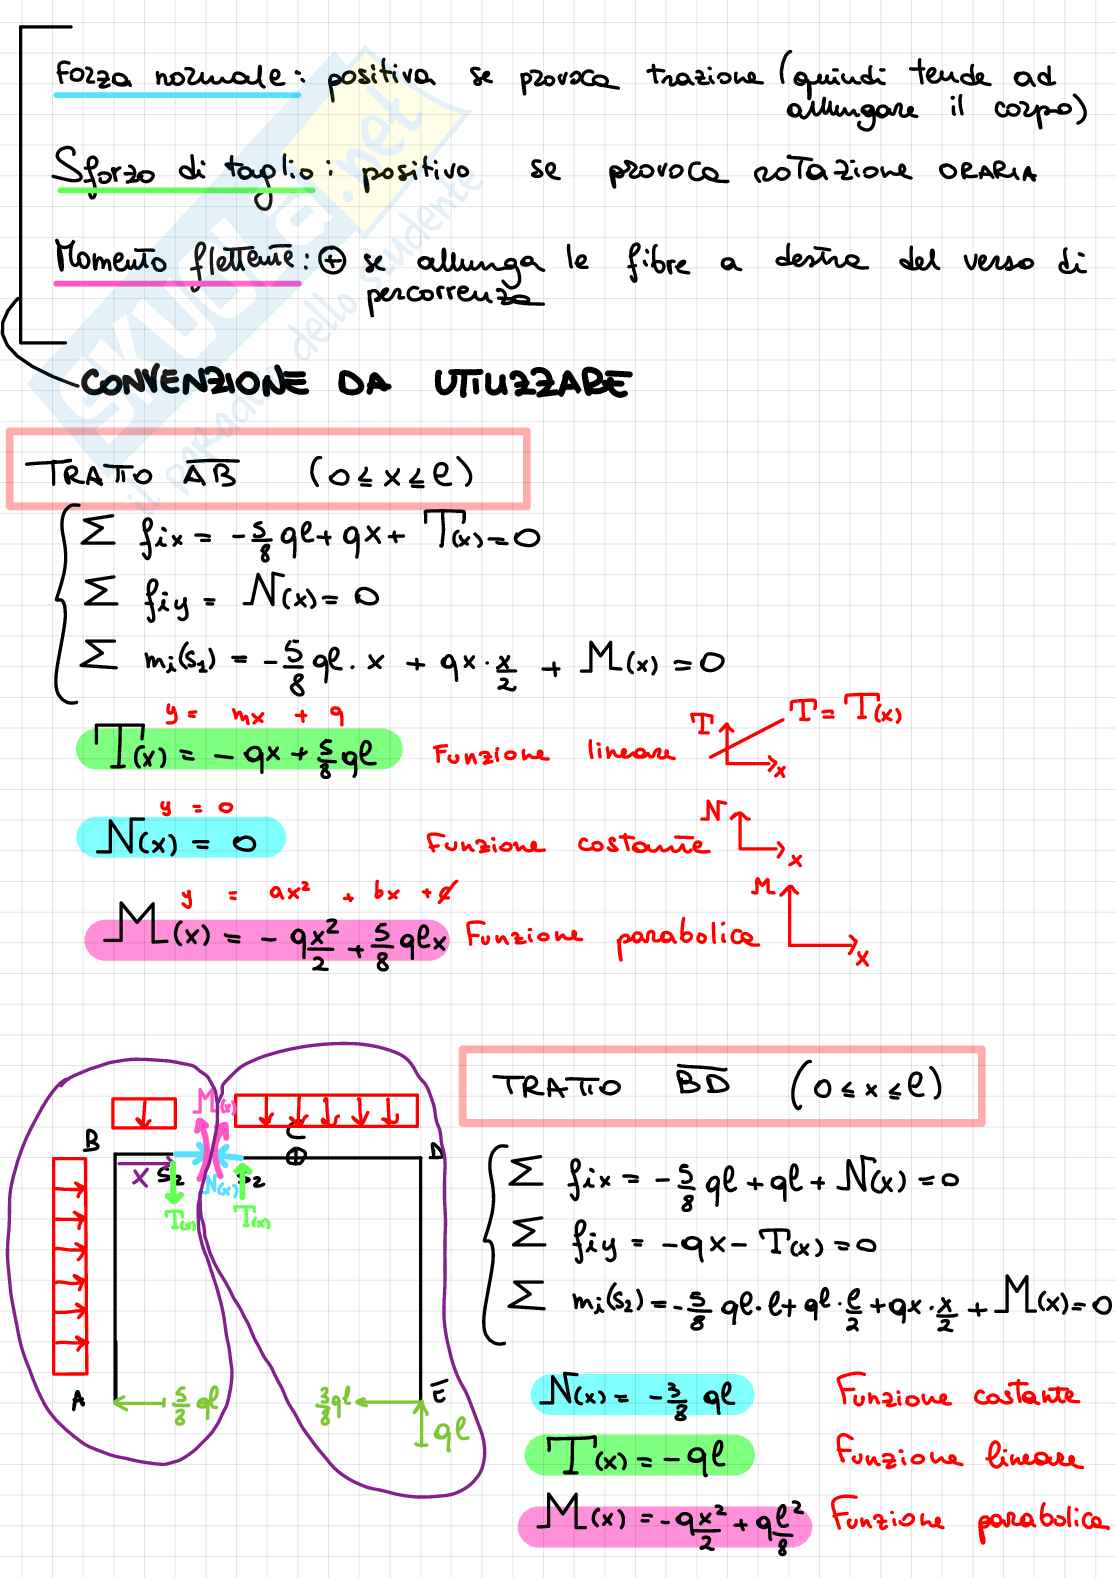 Forza normale: positiva se provoca trazione (quindi tende ad
allungare il corpo)
Sforzo di taglio: positivo se provoca rotazione ORARIA
Momento flettente: ⊕ se allunga le fibre a destra del verso di
percorrenza
CONVENZIONE DA UTILIZZARE
SKUOLA.net
il paradiso dello studente
TRATTO AB (0 ≤ x ≤ l)
Σ fix = -5/8 ql + qx + T(x) = 0
Σ fiy = N(x) = 0
Σ mi(S1) = -5/8 ql · x + qx · x/2 + M(x) = 0
y = mx + q
T(x) = - qx + 5/8 ql Funzione lineare T T = T(x) x
y = 0
N(x) = 0 Funzione costante N x
y = ax² + bx + c
M(x) = - qx²/2 + 5/8 qlx Funzione parabolica M x
TRATTO BD (0 ≤ x ≤ l)
M(x)
B C D
x S2 N(x) S2
T(x) T(x)
A 5/8 ql 3/8 ql E
ql
Σ fix = -5/8 ql + ql + N(x) = 0
Σ fiy = -qx - T(x) = 0
Σ mi(S2) = -5/8 ql · l + ql · l/2 + qx · x/2 + M(x) = 0
N(x) = -3/8 ql Funzione costante
T(x) = - ql Funzione lineare
M(x) = - qx²/2 + ql²/8 Funzione parabolica